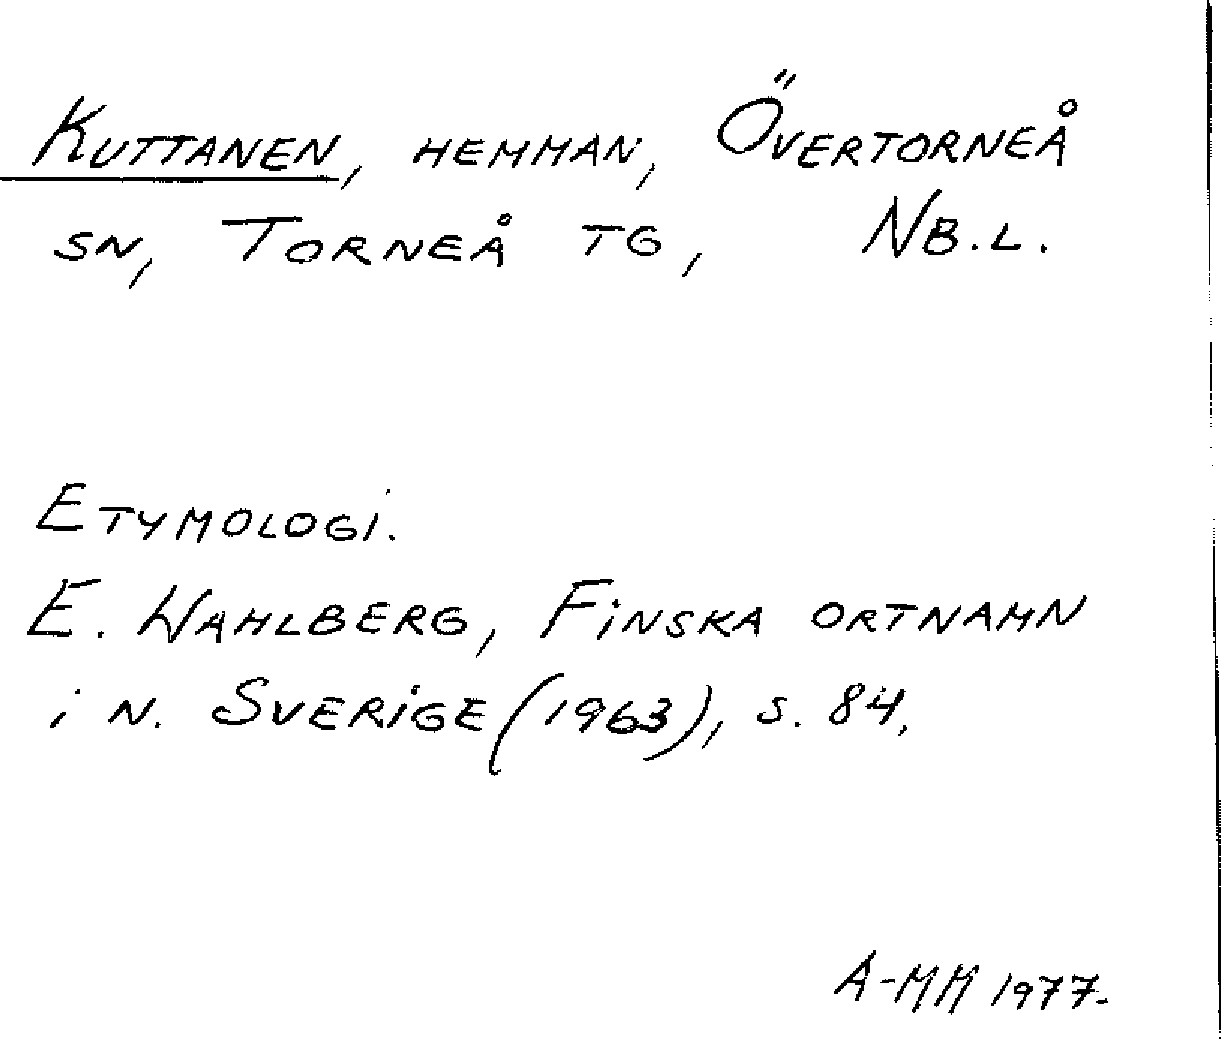 KUTTANEN, HEMMAN, ÖVERTORNEÅ
SN, TORNEÅ TG, NB.L.
ETYMOLOGI.
E. WAHLBERG, FINSKA ORTNAMN
i N. SVERiGE (1963), S. 84.
A-MM 1977.